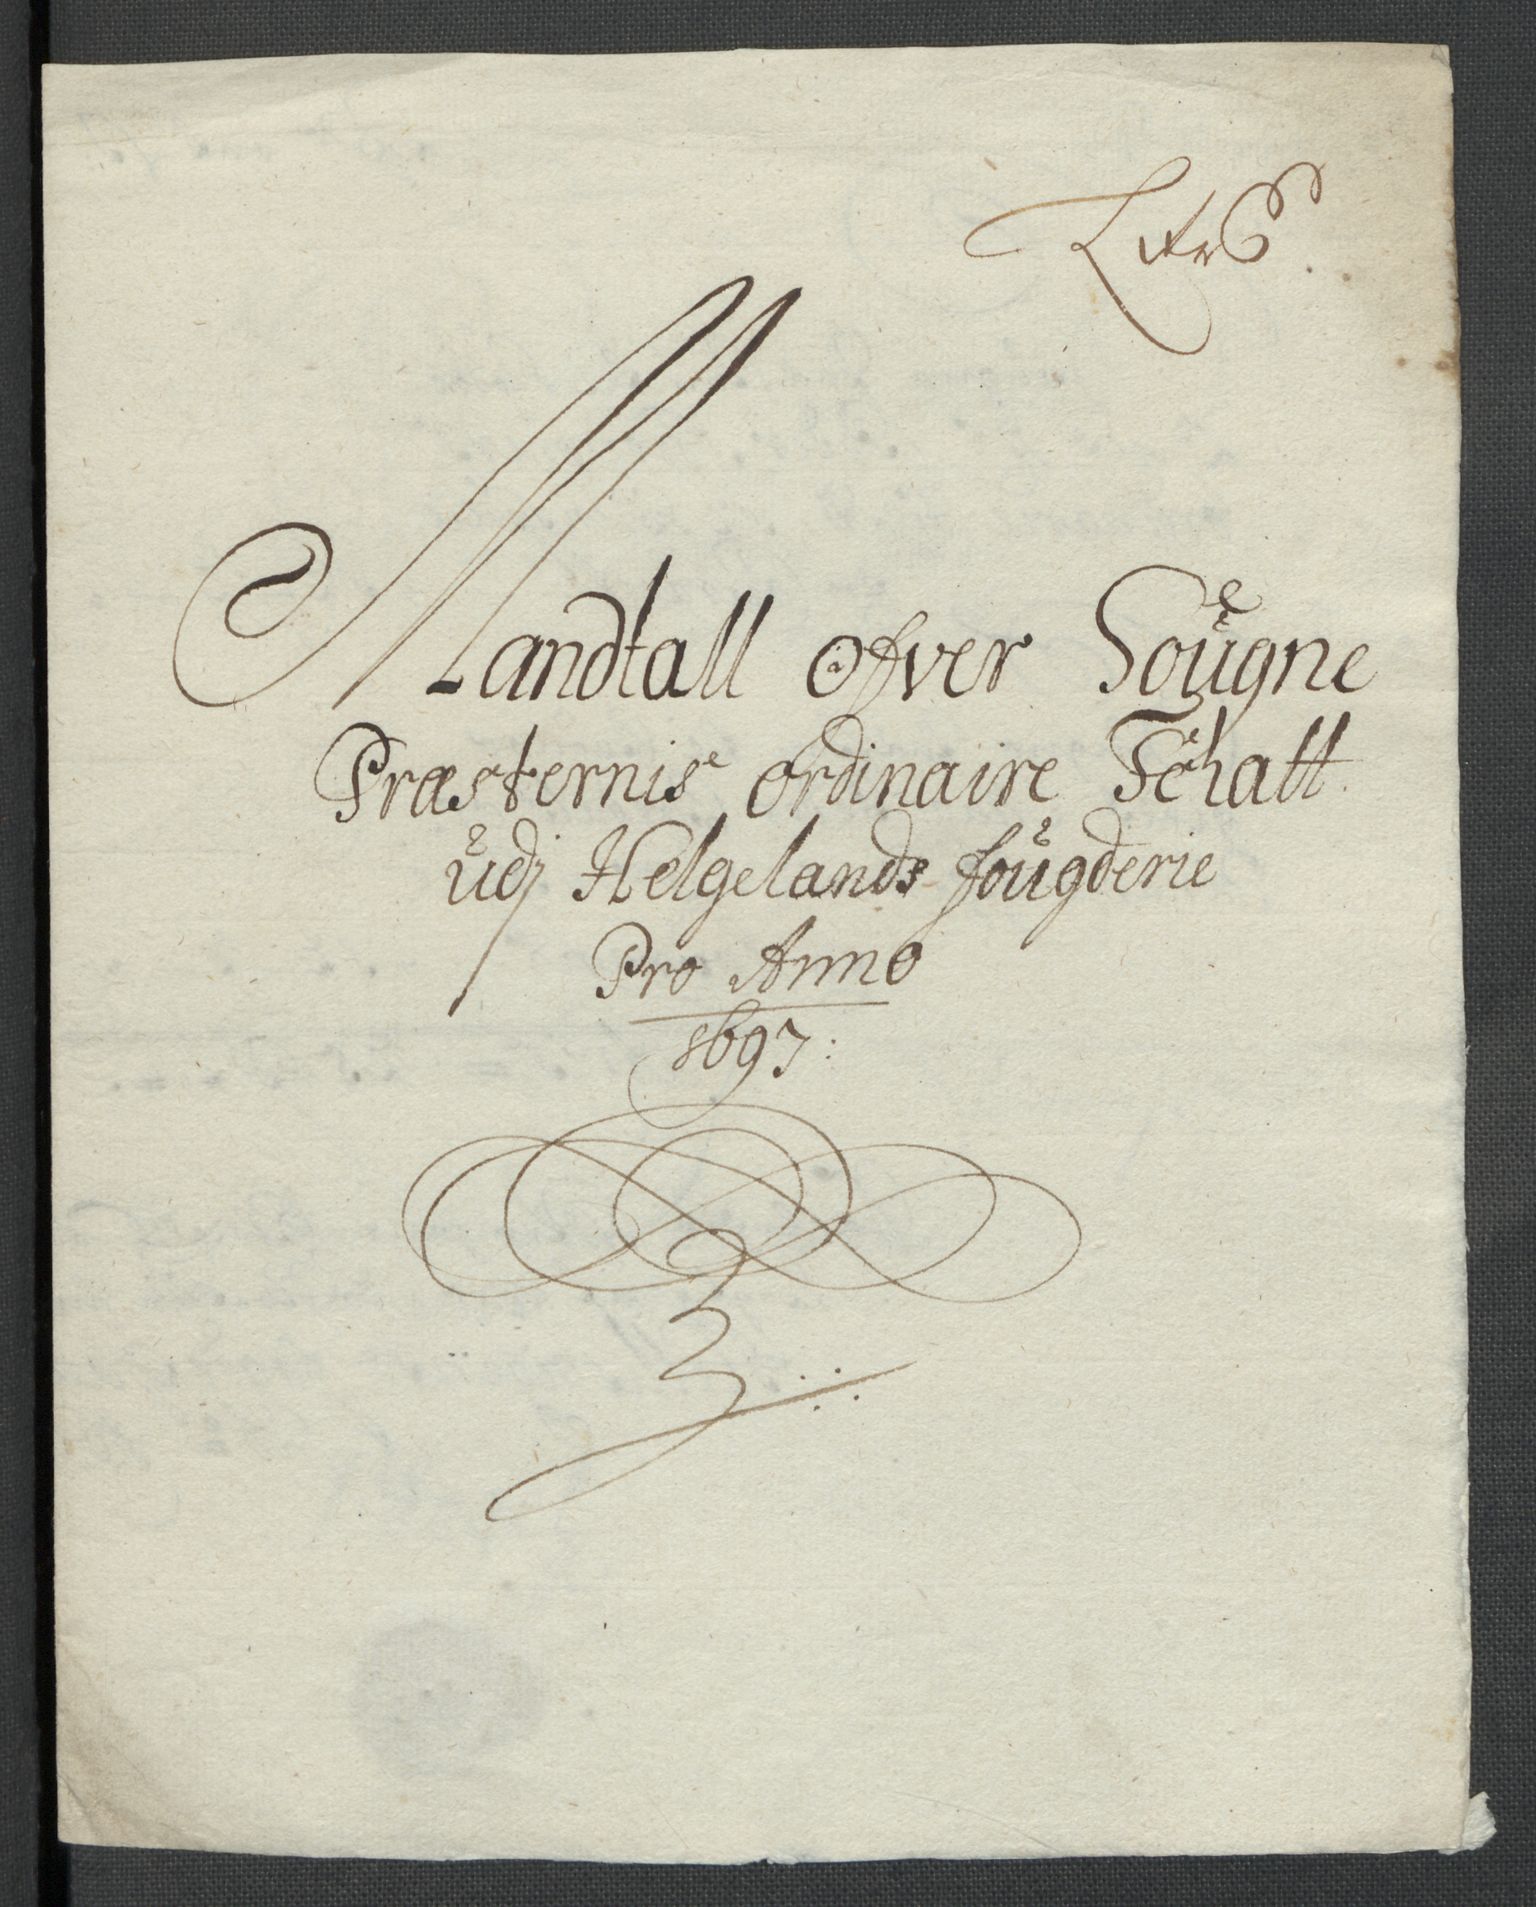 Mandtall ofver Sougne
Præsternis ordinaire Schatt
udj Helgelands fougderie
Pro Anno
1697: